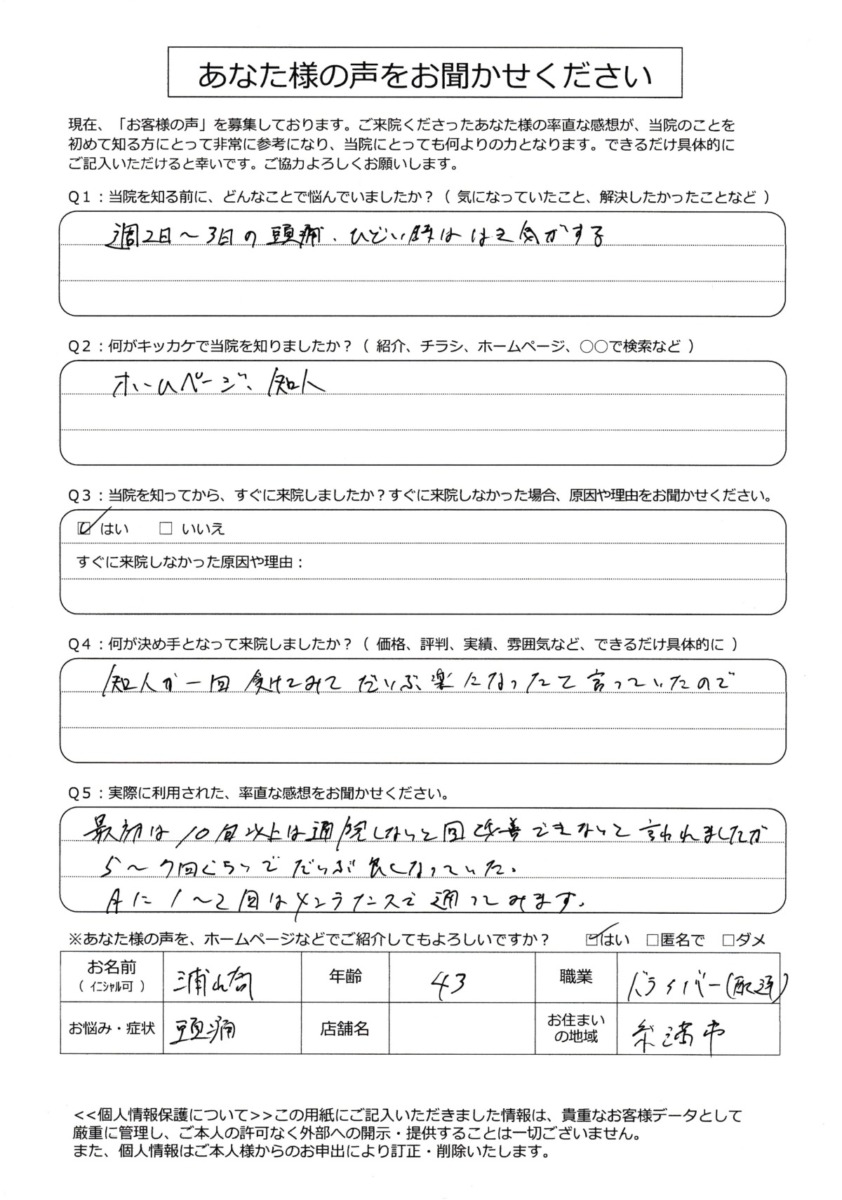 あなた様の声をお聞かせください
現在、「お客様の声」を募集しております。ご来院くださったあなた様の率直な感想が、当院のことを
初めて知る方にとって非常に参考になり、当院にとっても何よりの力となります。できるだけ具体的に
ご記入いただけると幸いです。ご協力よろしくお願いします。
Q1：当院を知る前に、どんなことで悩んでいましたか？（ 気になっていたこと、解決したかったことなど ）
週2日～3日の頭痛、ひどい時ははき気がする
Q2：何がキッカケで当院を知りましたか？（ 紹介、チラシ、ホームページ、○○で検索など ）
ホームページ、知人
Q3：当院を知ってから、すぐに来院しましたか？すぐに来院しなかった場合、原因や理由をお聞かせください。
☑ はい □ いいえ
すぐに来院しなかった原因や理由：
Q4：何が決め手となって来院しましたか？（ 価格、評判、実績、雰囲気など、できるだけ具体的に ）
知人が一回受けてみてだいぶ楽になったて言っていたので
Q5：実際に利用された、率直な感想をお聞かせください。
最初は10回以上は通院しないと改善できないと言われましたが
5～7回くらいでだいぶ良くなっていた。
月に1～2回はメンテナンスで通ってみます。
※あなた様の声を、ホームページなどでご紹介してもよろしいですか？ ☑はい □匿名で □ダメ
お名前 年齢 43 職業 ドライバー(配送)
（ ｲﾆｼｬﾙ可 ）
お悩み・症状 頭痛 店舗名 お住まい 糸満市
の地域
<<個人情報保護について>>この用紙にご記入いただきました情報は、貴重なお客様データとして
厳重に管理し、ご本人の許可なく外部への開示・提供することは一切ございません。
また、個人情報はご本人様からのお申出により訂正・削除いたします。